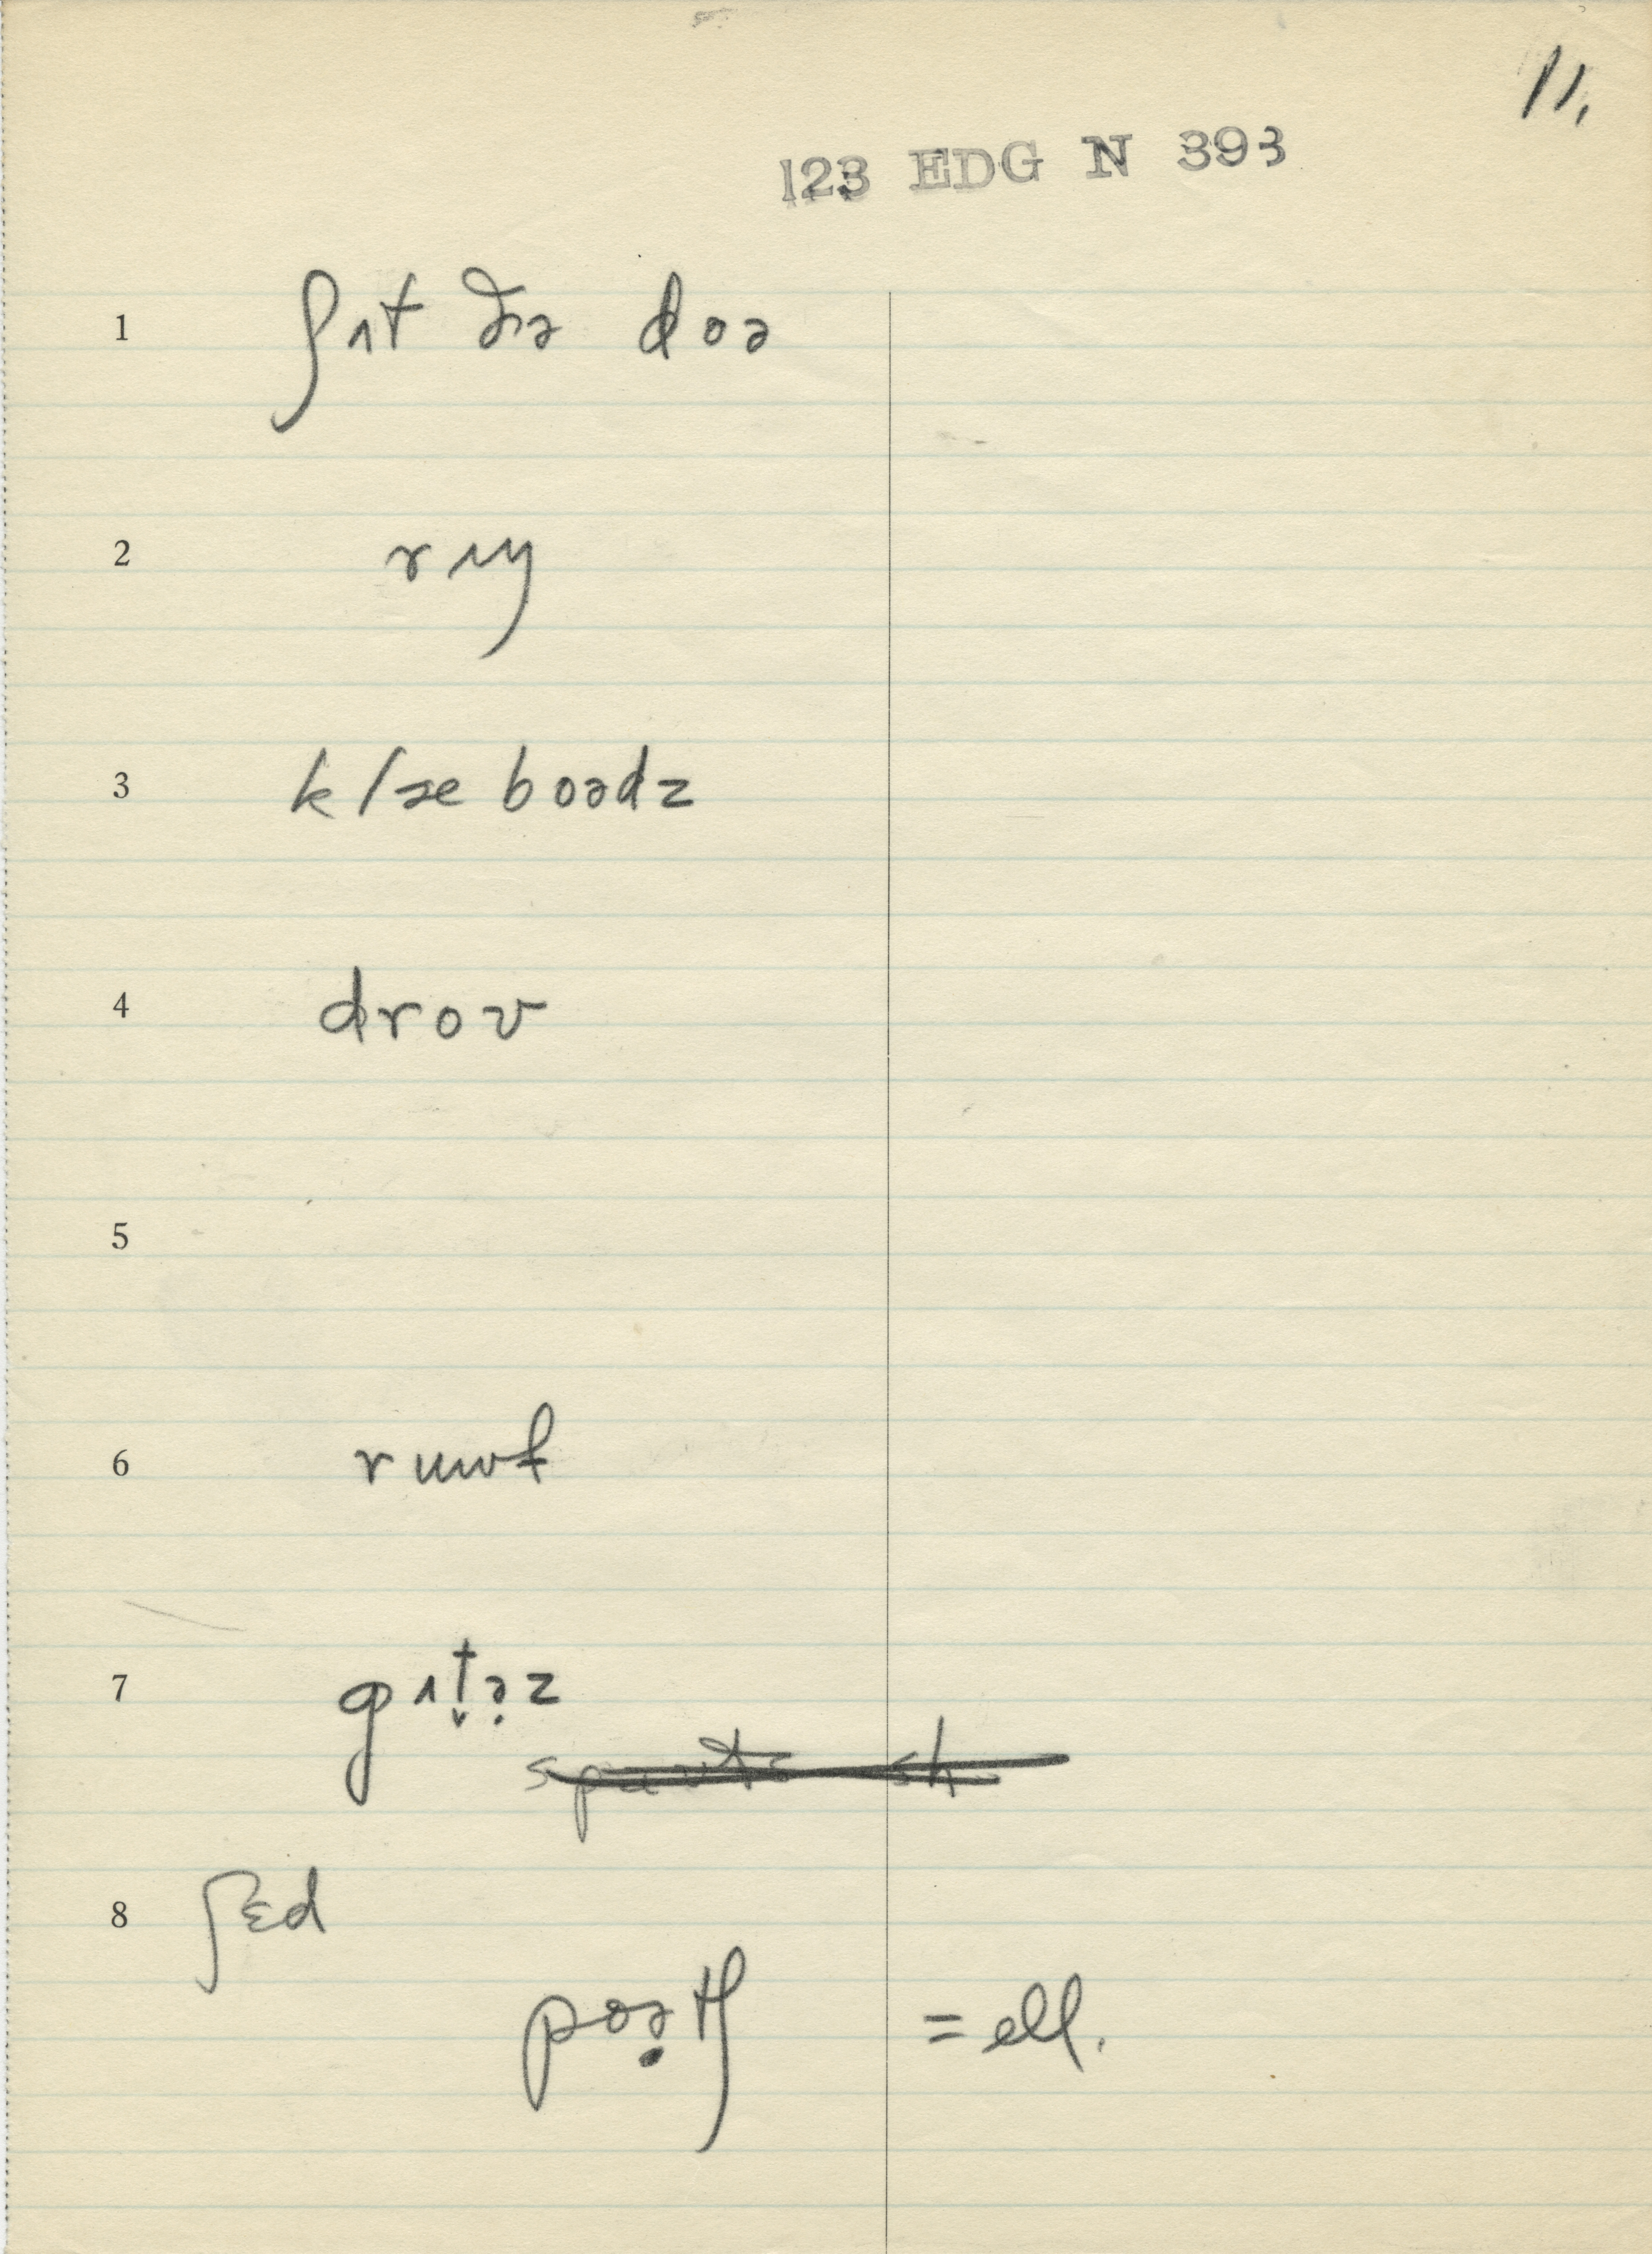 11.
123 EDG N 393
1 ʃʌt ðə doə
2 rɪŋ
3 klæ boədz
4 drov
5
6 ruwf
7 gʌt̬ə̣z
8 ʃɛd
poə̣tʃ = ell.